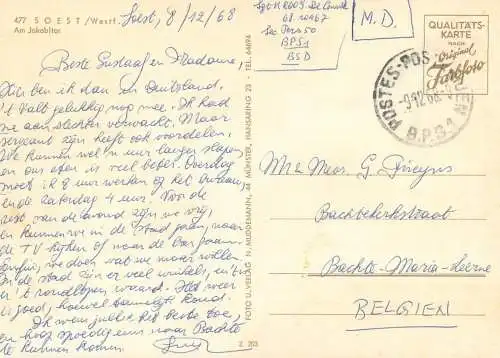 477 SOEST/Westf.
Am Jakobitor
Soest, 8/12/68
Beste Gustaaf en Madame,
Hier ben ik dan in Duitsland.
't Valt gelukkig nog mee. Ik had
slechter verwacht. Maar
sergeant zijn heeft ook voordelen.
We kunnen wel n uur langer slapen
en ons eten is veel beter. Overdag
moet ik 8 uur werken op het bureau,
en de zaterdag 4 uur. Voor de
rest van de avond zijn we vrij,
en kunnen we in de stad gaan, naar
de TV kijken of naar de bar gaan.
Enfin, we doen wat we maar willen
In de stad zijn er veel winkels, en 't
is 't rondlopen waard. Het weer
is goed, hoewel tamelijk koud.
Ik wens jullie het beste toe,
en hoop spoedig eens naar Bachte
te kunnen komen.
FOTO U. VERLAG N. MUDDEMANN, 44 MÜNSTER, HANSARING 23 - TEL. 64694
Z 703
Sgt
De
68
Sec Pers 50
BPS1
BSD
M.D.
QUALITÄTS-
KARTE
NACH
Original
Farbfoto
POSTES-POS
-9-12 68
B.P.S. 1
Mr & Mevr. G.
Bachtekerkstraat
Bachte-Maria-Leerne
BELGIEN